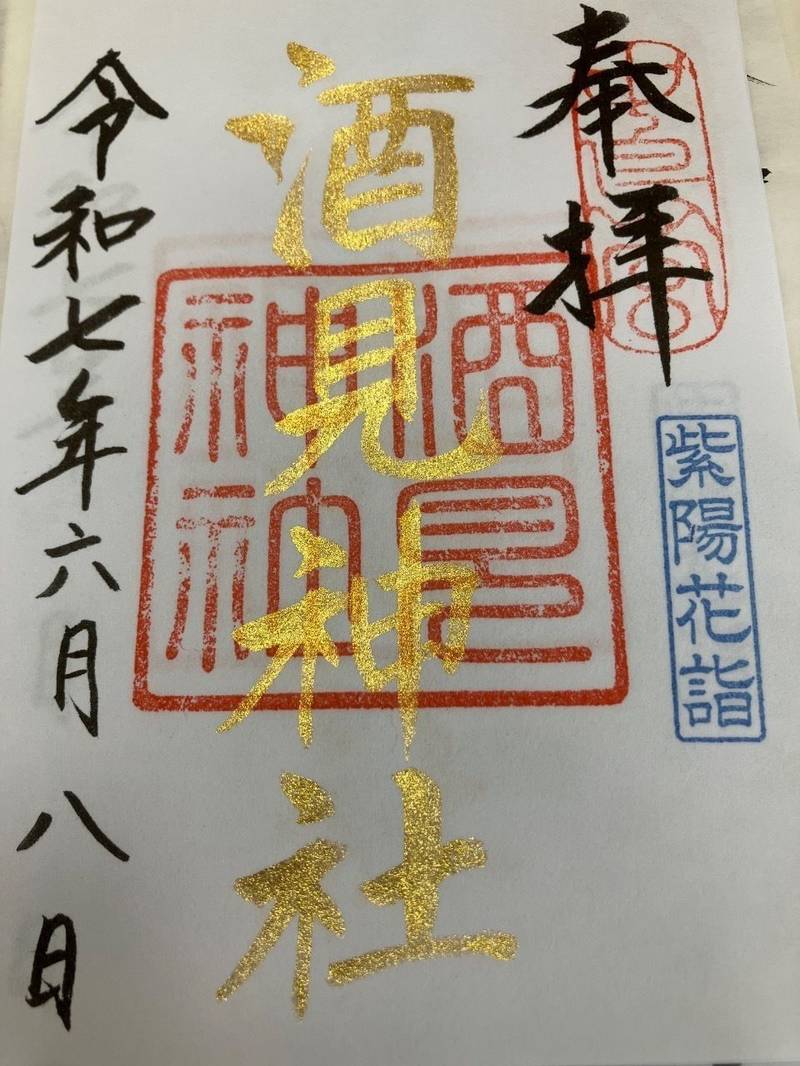 奉拝
紫陽花詣
酒見神社
酒見
令和七年六月八日